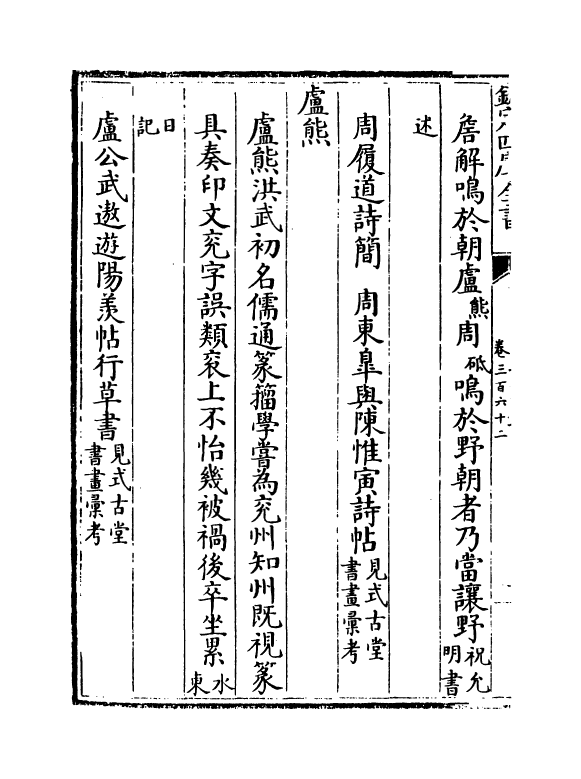 欽定四庫全書
卷三百六十二
詹解鳴於朝盧熊周砥鳴於野朝者乃當讓野祝允明書
述
周履道詩簡　周東臯與陳惟寅詩帖見式古堂書畫彙考
盧熊
盧熊洪武初名儒通篆籀學嘗為兖州知州既視篆
具奏印文兖字誤類衮上不怡幾被禍後卒坐累水東
日記
盧公武遨遊陽羨帖行草書見式古堂書畫彙考